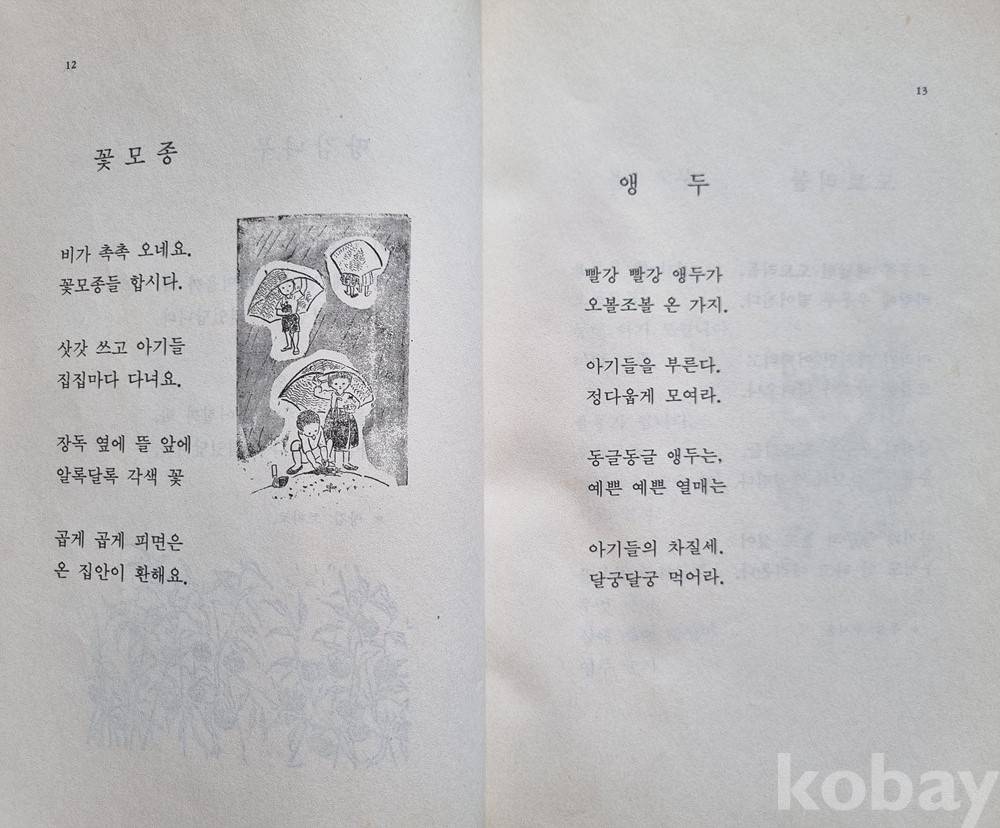 12
꽃모종
비가 촉촉 오네요.
꽃모종들 합시다.
삿갓 쓰고 아기들
집집마다 다녀요.
장독 옆에 뜰 앞에
알록달록 각색 꽃
곱게 곱게 피면은
온 집안이 환해요.
13
앵두
빨강 빨강 앵두가
오볼조볼 온 가지.
아기들을 부른다.
정다웁게 모여라.
동글동글 앵두는,
예쁜 예쁜 열매는
아기들의 차질세.
달궁달궁 먹어라.
kobay